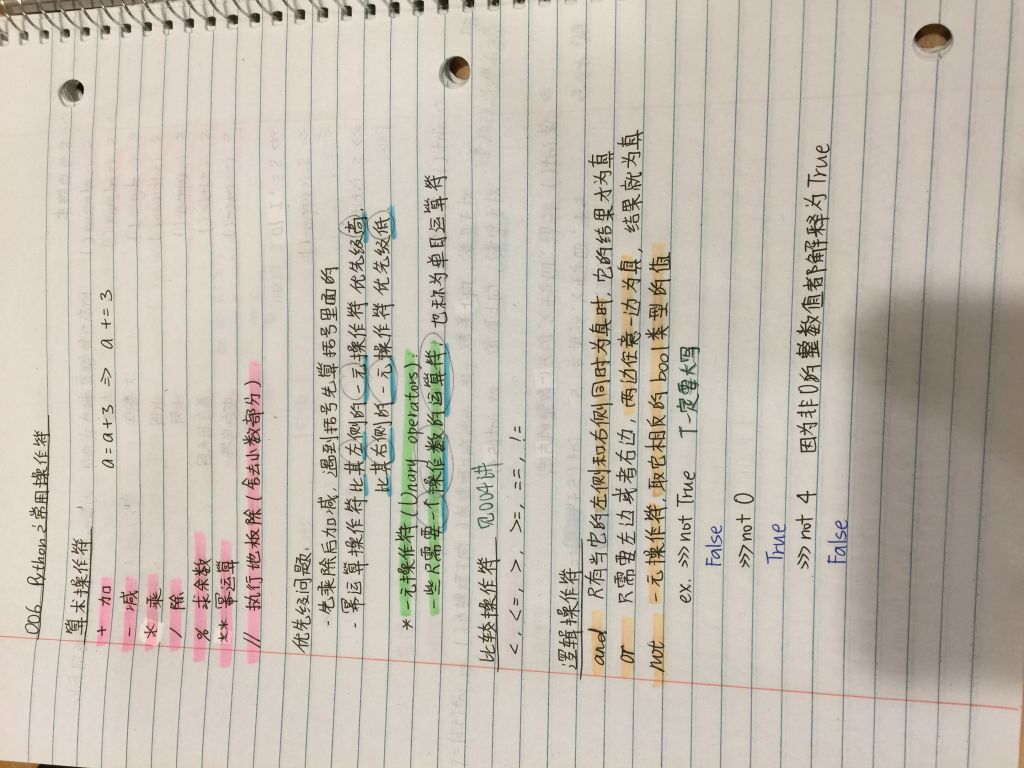 006 Python之常用操作符
算术操作符
+ 加 a = a+3 => a += 3
- 减
* 乘
/ 除
% 求余数
** 幂运算
// 执行地板除(舍去小数部分)
优先级问题:
- 先乘除后加减,遇到括号先算括号里面的
- 幂运算操作符比其左侧的一元操作符优先级高,
比其右侧的一元操作符优先级低
* 一元操作符(Unary operators):
- 些只需要一个操作数的运算符,也称为单目运算符
比较操作符 见004讲
<, <=, >, >=, ==, !=
逻辑操作符
and 只有当它的左侧和右侧同时为真时,它的结果才为真
or 只需要左边或者右边,两边任意一边为真,结果就为真
not 一元操作符,取它相反的bool类型的值
ex. >>> not True T一定要大写
False
>>> not 0
True
>>> not 4 因为非0的整数值都解释为True
False